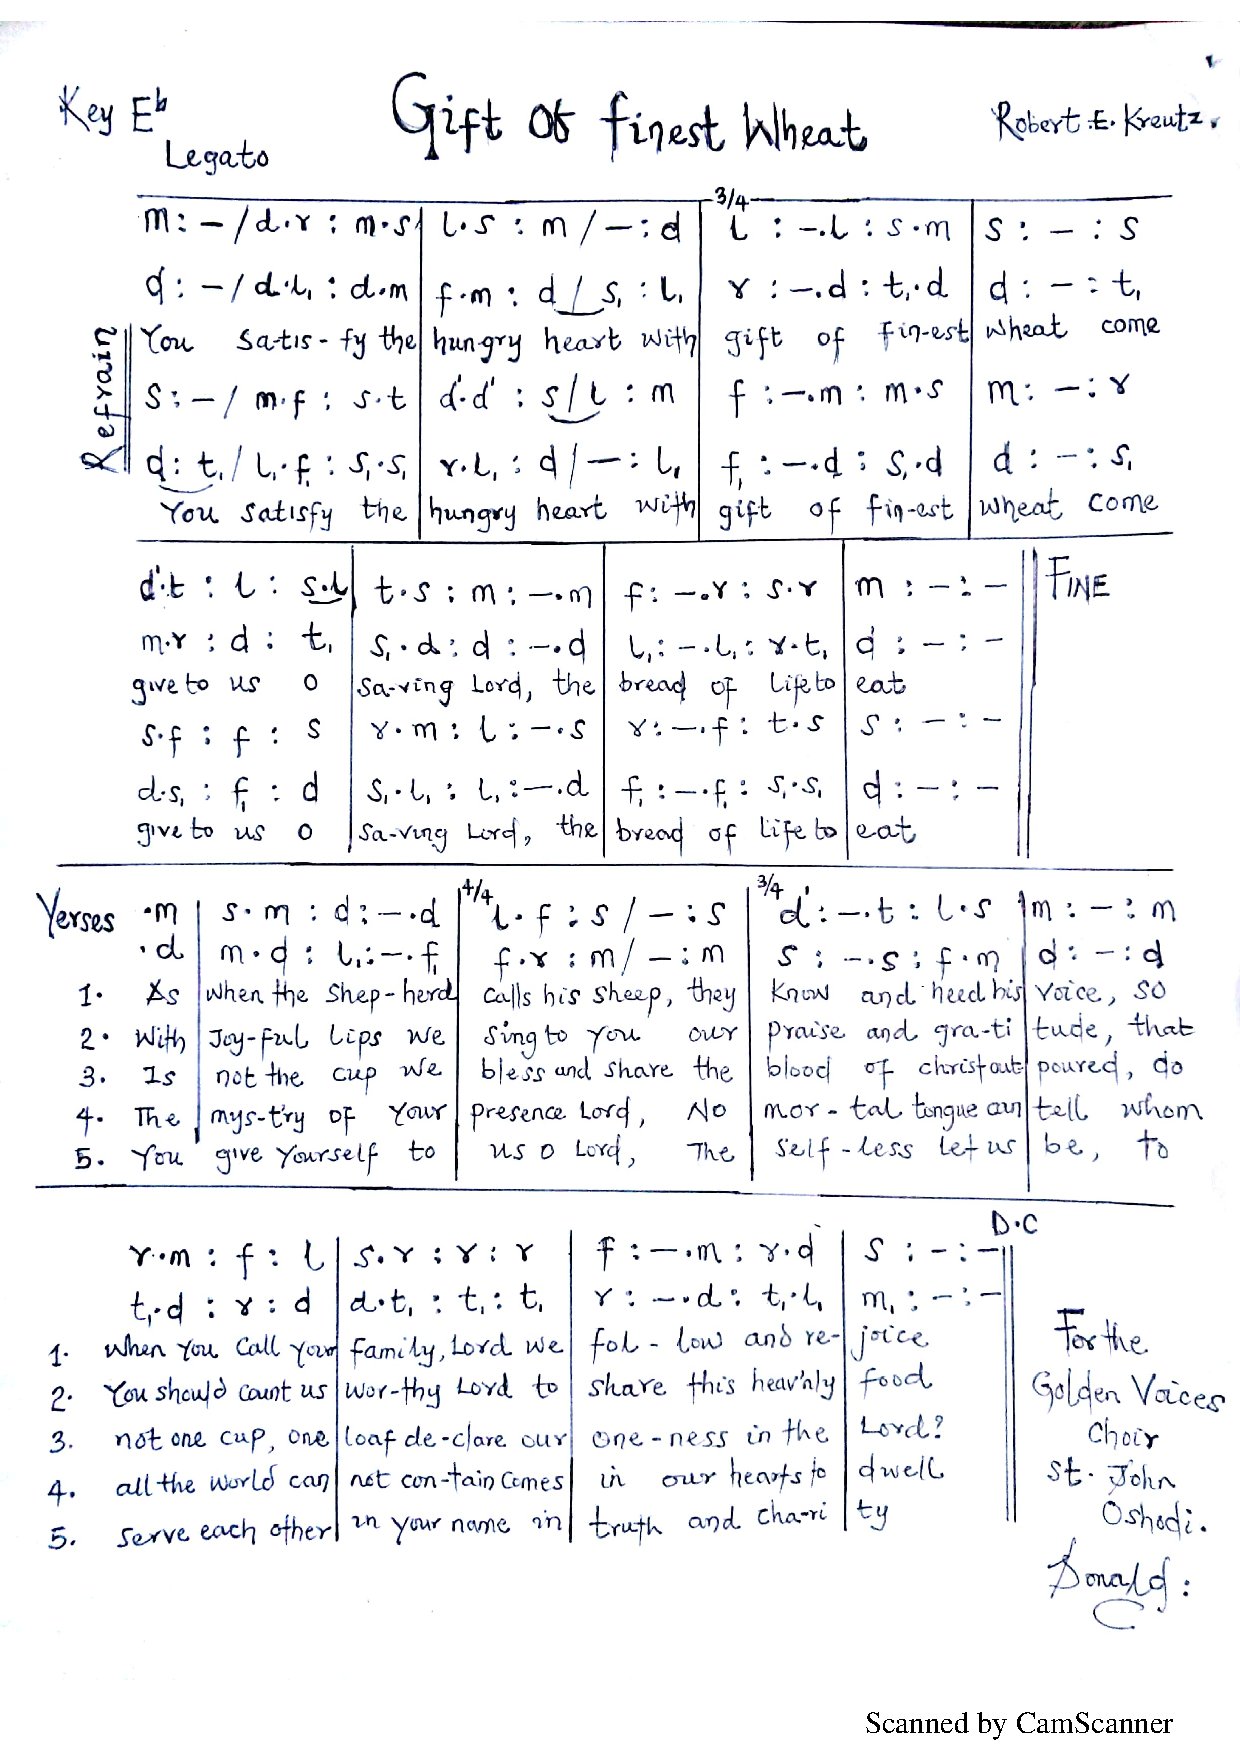 Key E♭ Gift Of finest Wheat Robert E. Kreutz.
Legato
3/4
m : – / d.r : m.s | l.s : m / – : d | l : –.l : s.m | s : – : s
d : – / d.l₁ : d.m | f.m : d / s₁ : l₁ | r : –.d : t₁.d | d : – : t₁
Refrain
You satis-fy the | hungry heart with | gift of fin-est | wheat come
s : – / m.f : s.t | d'.d' : s / l : m | f : –.m : m.s | m : – : r
d : t₁ / l₁.f₁ : s₁.s₁ | r.l₁ : d / – : l₁ | f₁ : –.d : s₁.d | d : – : s₁
You satisfy the | hungry heart with | gift of fin-est | wheat come
d'.t : l : s.l | t.s : m : –.m | f : –.r : s.r | m : – : – || FINE
m.r : d : t₁ | s₁.d : d : –.d | l₁ : –.l₁ : r.t₁ | d : – : –
give to us o | sa-ving Lord, the | bread of life to | eat
s.f : f : s | r.m : l : –.s | r : –.f : t.s | s : – : –
d.s₁ : f₁ : d | s₁.l₁ : l₁ : –.d | f₁ : –.f₁ : s₁.s₁ | d : – : –
give to us o | sa-ving Lord, the | bread of life to | eat
4/4 3/4
Verses .m | s.m : d : –.d | l.f : s / – : s | d' : –.t : l.s | m : – : m
.d | m.d : l₁ : –.f₁ | f.r : m / – : m | s : –.s : f.m | d : – : d
1. As | when the Shep-herd | calls his sheep, they | know and heed his | voice, so
2. With | Joy-ful lips we | sing to you our | praise and gra-ti | tude, that
3. Is | not the cup we | bless and share the | blood of christ out | poured, do
4. The | mys-t'ry of your | presence Lord, No | mor-tal tongue can | tell whom
5. You | give yourself to | us o Lord, The | self-less let us | be, to
D.C
r.m : f : l | s.r : r : r | f : –.m : r.d | s : – : –
t₁.d : r : d | d.t₁ : t₁ : t₁ | r : –.d : t₁.l₁ | m₁ : – : –
1. when you call your | family, Lord we | fol-low and re- | joice
2. You should count us | wor-thy Lord to | share this heav'nly | food
3. not one cup, one | loaf de-clare our | one-ness in the | Lord?
4. all the world can | not con-tain comes | in our hearts to | dwell
5. serve each other | in your name in | truth and cha-ri | ty
For the
Golden Voices
Choir
St. John
Oshodi.
Donald:
Scanned by CamScanner